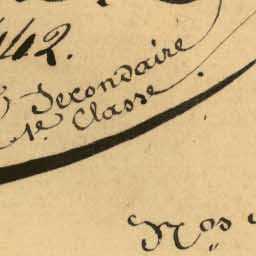 442.
Secondaire
1e. Classe.
Nos